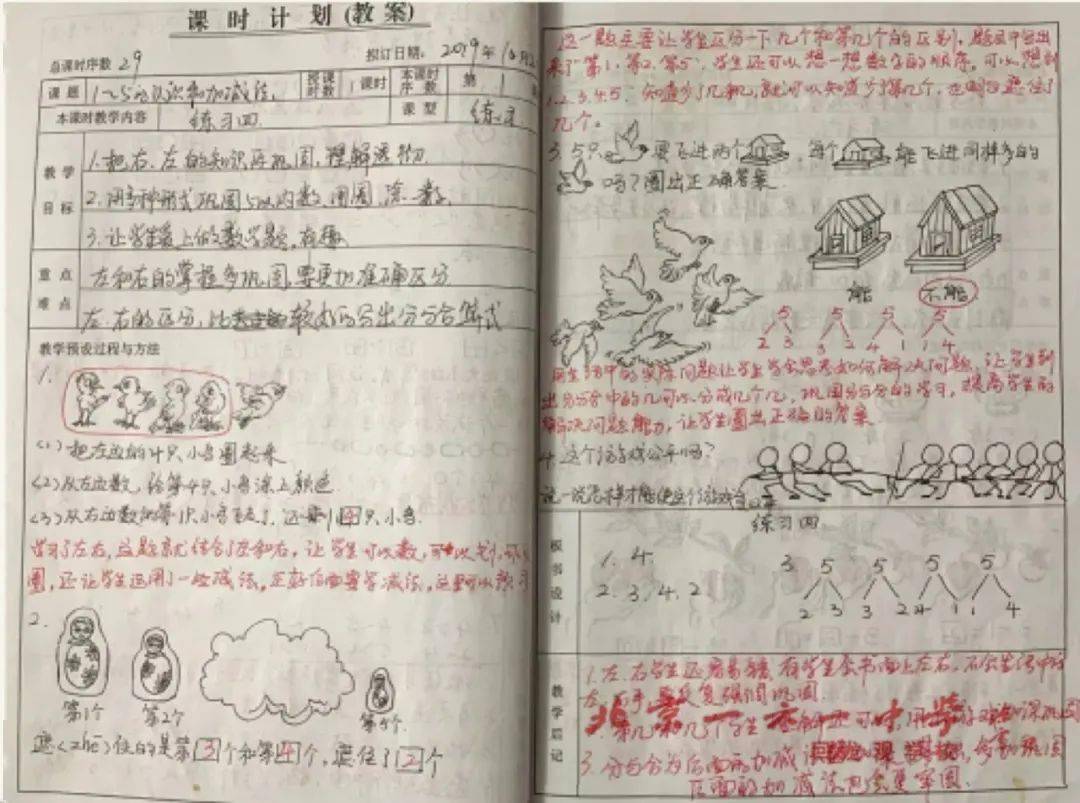 课时计划(教案)
总课时序数 29 拟订日期: 2019年10月2
课题 1~5的认识和加减法 授课时数 1课时 本课时序数 第1
本课时教学内容 练习四 课型 练习
教学目标
1.把右、左的知识再巩固,理解透彻
2.用多种形式巩固5以内数
3.让学生爱上的数学题,有趣
重点 左和右的掌握多巩固,要更加准确区分
难点 左、右的区分,比较好的写出分与合算式
教学预设过程与方法
1.
(1)把左边的4只小鸟圈起来
(2)从左边数,给第4只小鸟涂上颜色.
(3)从右边数的第1只小鸟飞走了,还剩4只小鸟.
学习了左右,这题就结合了左和右,让学生可以数,可以划,可以
圈,还让学生运用了一些减法,正好后面要学减法,这里可以预习
2.
第1个 第2个 第5个
遮(zhē)住的是第3个和第4个,遮住了2个
这一题主要让学生区分一下几个和第几个的区别,题目中写出
来了第1、第2、第5,学生还可以想一想数字的顺序,可以想到
1.2.3.4.5.知道少了几和几,就可以知道少第几个,也明白遮住了
几个。
3.5只 要飞进两个 ,每个 能飞进同样多的
吗?圈出正确答案.
能 不能
5 5 5 5
2 3 3 2 4 1 1 4
用生活中的实际问题让学生学会思考如何解决问题,让学生列
出分与合中的几可以分成几和几,巩固分与合的学习,提高学生的
解决问题能力,让学生圈出正确的答案
4.这个游戏公平吗?
说一说怎样才能使这个游戏公平
板书设计
练习四
1. 4.
2. 3. 4. 2
5 5 5 5
2 3 3 2 4 1 1 4
教学后记
1.左、右学生还容易错,有学生会书面上左右,不会生活中的
左、右手,要反复强调巩固
3.分与合为后面的加减
后面的加减法也会更牢固.